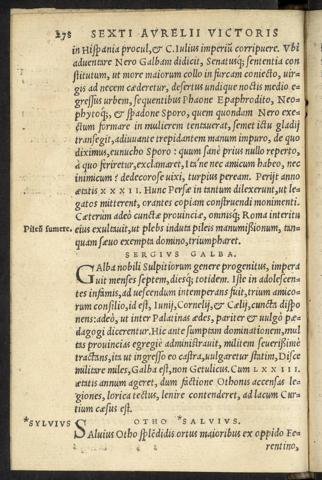 278 SEXTI AVRELII VICTORIS
in Hispania procul, & C. Iulius imperiũ corripuere. Vbi
aduentare Nero Galbam didicit, Senatusq; sententia con
stitutum, ut more maiorum collo in furcam coniecto, uir-
gis ad necem cæderetur, desertus undique noctis medio e-
gressus urbem, sequentibus Phaone Epaphrodito, Neo-
phytoq;, & spadone Sporo, quem quondam Nero exe-
ctum formare in mulierem tentauerat, semet ictu gladij
transegit, adiuuante trepidantem manum impuro, de quo
diximus, eunucho Sporo: quum sanè prius nullo reperto,
à quo feriretur, exclamaret, Ita'ne nec amicum habeo, nec
inimicum? dedecorose uixi, turpius peream. Perijt anno
ætatis XXXII. Hunc Persæ in tantum dilexerunt, ut le-
gatos mitterent, orantes copiam construendi monimenti.
Cæterùm adeò cunctæ prouinciæ, omnisq; Roma interitu
Pileũ sumere. eius exultauit, ut plebs induta pileis manumissionum, tan-
quam sæuo exempta domino, triumpharet.
SERGIVS GALBA.
GAlba nobili Sulpitiorum genere progenitus, impera
uit menses septem, diesq; totidem. Iste in adolescen-
tes infamis, ad uescendum intemperans fuit, trium amico-
rum consilio, id est, Iunij, Cornelij, & Cælij, cuncta dispo
nens: adeò, ut inter Palatinas ædes, pariter & uulgò pæ-
dagogi dicerentur. Hic ante sumptam dominationem, mul
tas prouincias egregiè administrauit, militem seuerissimè
tractans, ita ut ingresso eo castra, uulgaretur statim, Disce
militare miles, Galba est, non Getulicus. Cum LXXIII.
ætatis annum ageret, dum factione Othonis accensas le-
giones, lorica tectus, lenire contenderet, ad lacum Cur-
tium cæsus est.
*SYLVIVS OTHO *SALVIVS.
SAluius Otho splẽdidis ortus maioribus ex oppido Fe-
rentino,